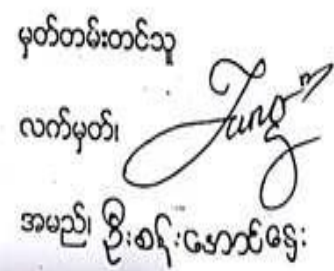 မှတ်တမ်းတင်သူ
လက်မှတ်၊
အမည်၊ ဦးစန်းအောင်ဌေး